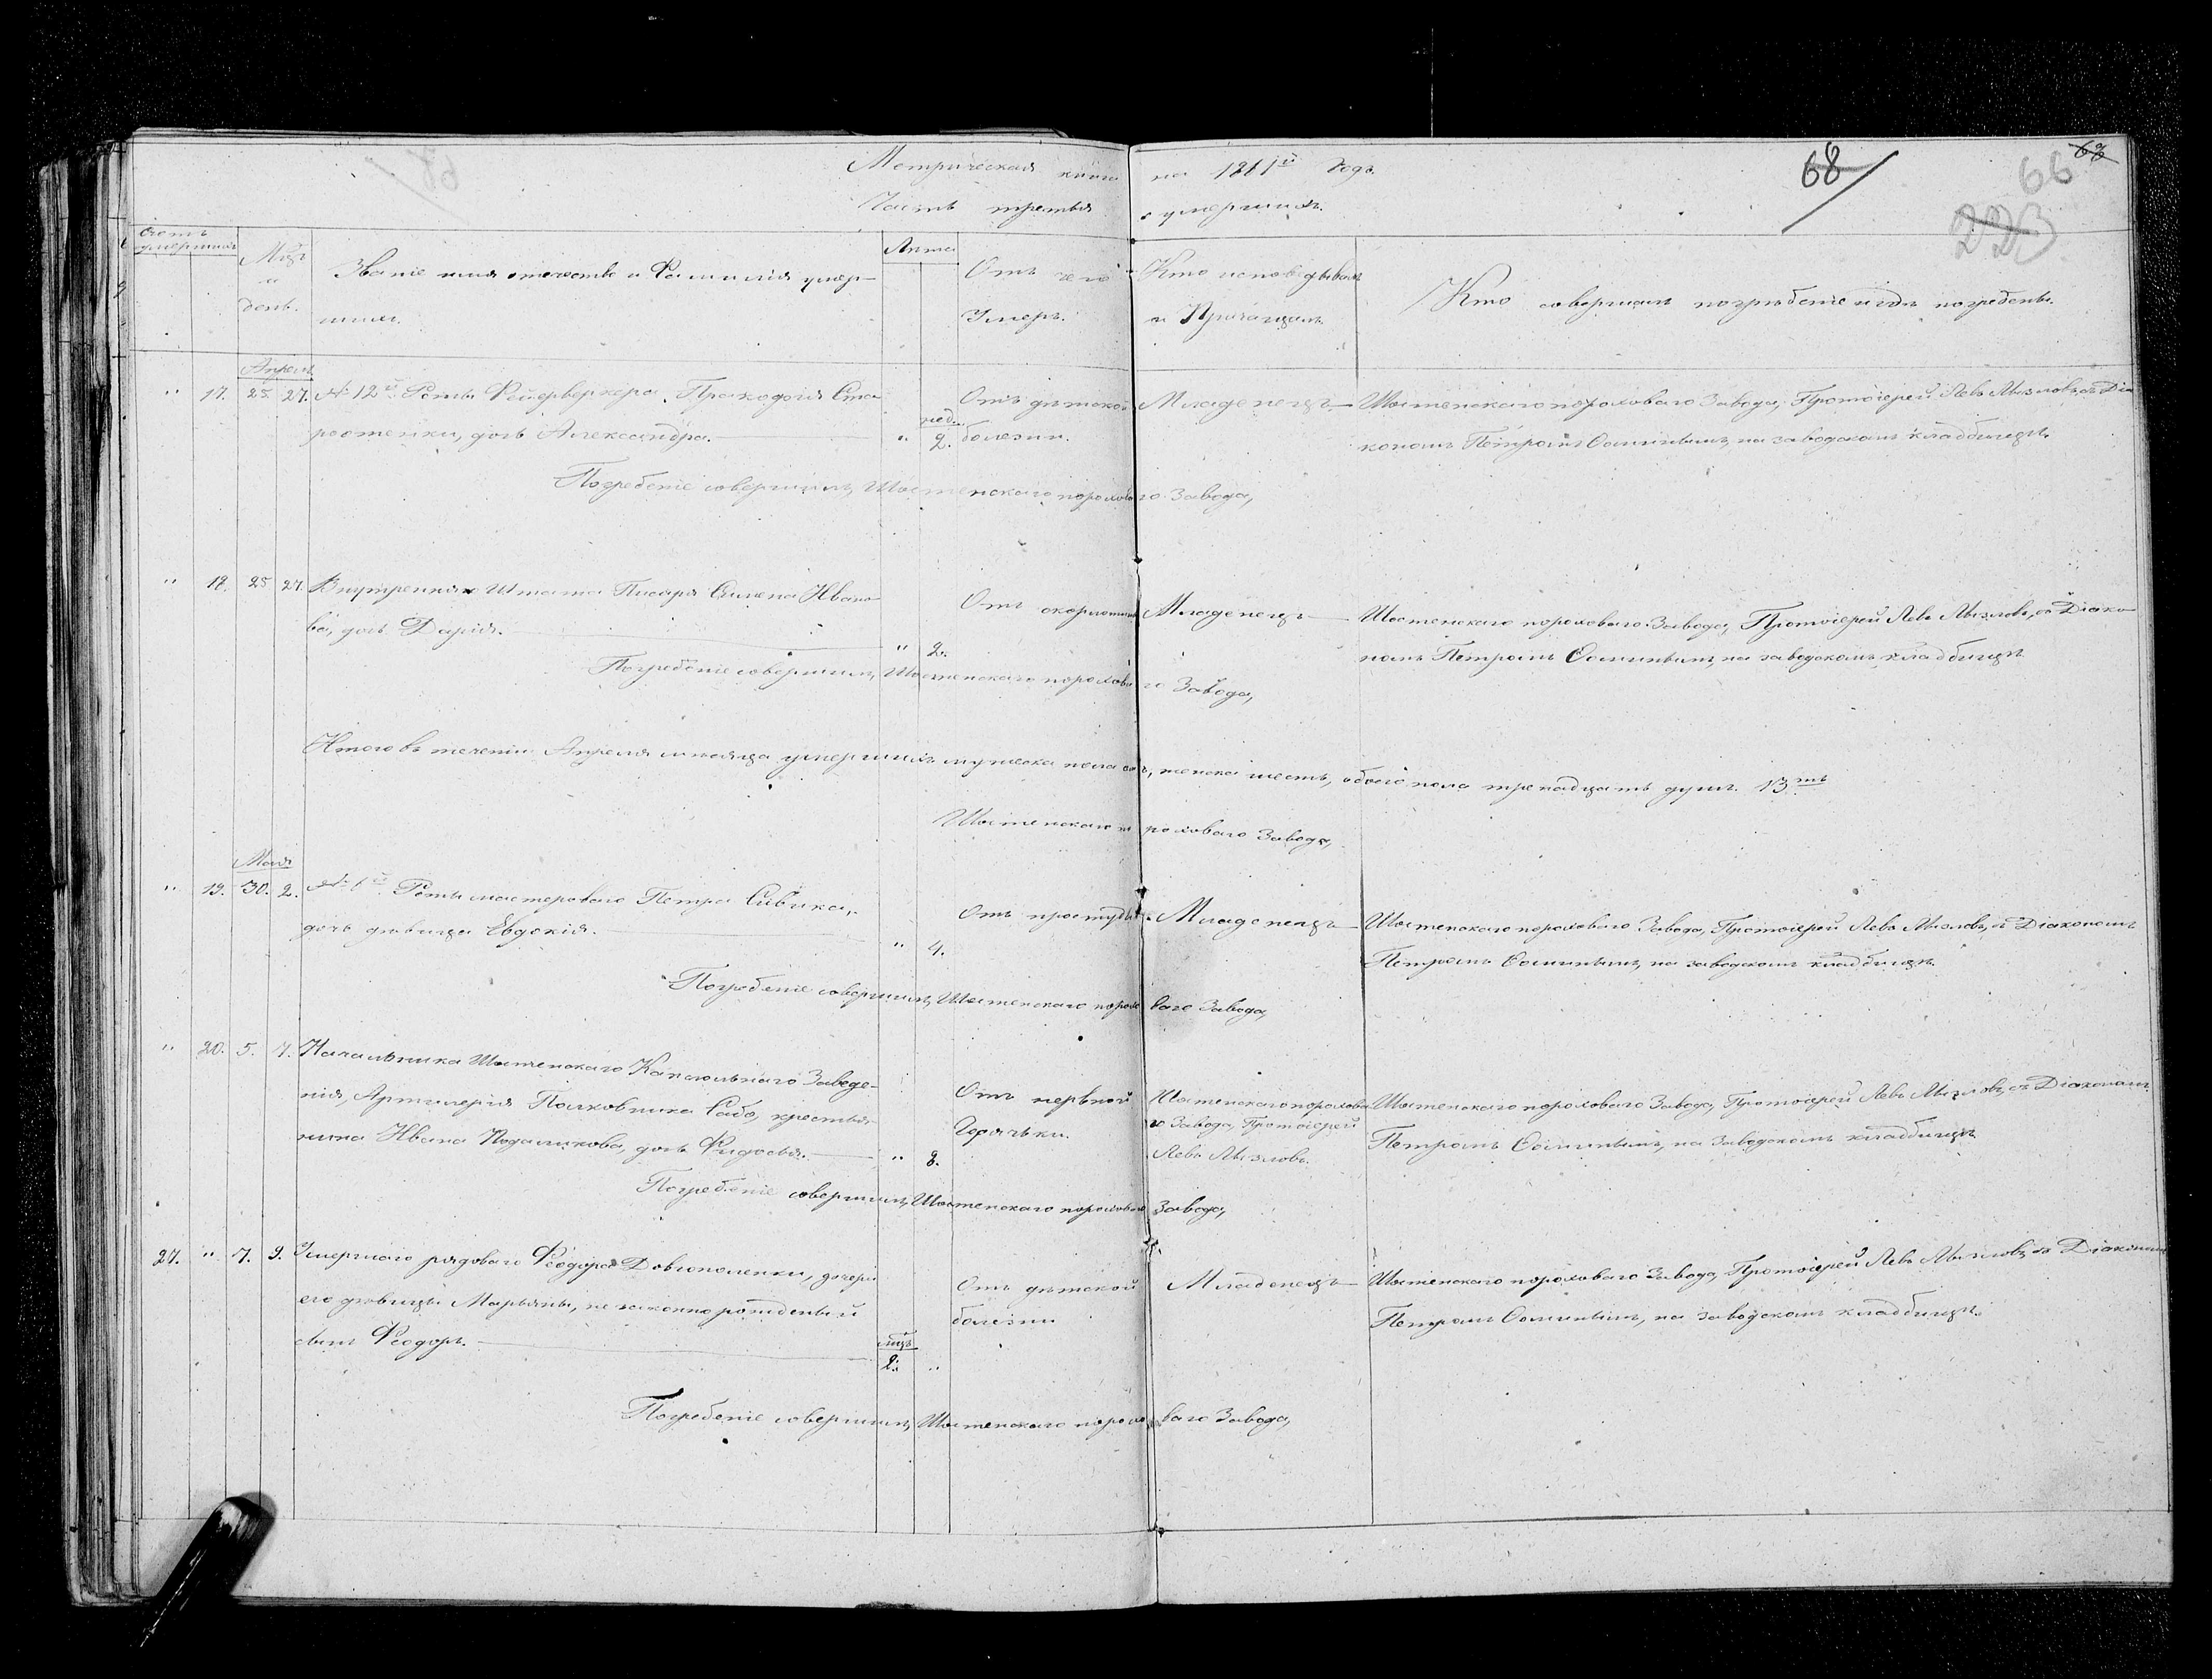 Метрическая книга на 1861й годъ.
Часть третья о умершихъ.
68
66
68
223
Счетъ умершихъ
Мѣсъ и день.
Званіе имя отечество и Фамилія умер-
шихъ.
Лѣта
Отъ чего
Умеръ.
Кто исповѣдывалъ
и Причащалъ
Кто совершалъ погрѣбеніе и гдѣ погребены.
Апрель
" 17. 25 27. № 12й Роты Фейерверкера, Ста-
ростенки, дочь Александра.
нед.
" 2.
Отъ дѣтской
болезни.
Младенецъ
Шостенскаго пороховаго Завода, Протоіерей Левъ Мызловъ, съ Діа-
кономъ Петромъ на заводскомъ кладбищѣ.
Погребеніе совершилъ, Шостенскаго пороховаго Завода,
" 18. 25 27. Внутренняго Штата Писаря Семена Ивано-
ва, дочь Дарія.
" 2.
Отъ
Младенецъ
Шостенскаго пороховаго Завода, Протоіерей Левъ Мызловъ, съ Діако-
номъ Петромъ на заводскомъ кладбищѣ
Погребеніе совершилъ, Шостенскаго пороховаго Завода,
Итого въ теченіи Апреля мѣсяца умершихъ мужеска пола женска шесть, обоего пола тренадцать душъ. 13ть
Шостенскаго пороховаго Завода,
Маія
" 19. 30. 2. Роты мастероваго Петра Сивика,
дочь дѣвица Евдокія.
" 4.
Отъ простуды.
Младенецъ
Шостенскаго пороховаго Завода, Протоіерей Левъ Мызловъ, съ Діакономъ
Петромъ на заводскомъ кладбищѣ.
Погребеніе совершилъ, Шостенскаго пороховаго Завода,
" 20. 5. 7. Начальника Шостенскаго Капсюльнаго Заведе-
нія, Артилеріи Полковника крестья-
нина Ивана дочь
" 8.
Отъ нервной
Горячьки.
Шостенскаго порохова-
го Завода, Протоіерей
Левъ Мызловъ.
Шостенскаго пороховаго Завода, Протоіерей Левъ Мызловъ, съ Діакономъ
Петромъ на Заводскомъ кладбищѣ
Погребеніе совершилъ, Шостенскаго пороховаго Завода,
27. " 7. 9. Умершаго рядоваго Феодора Довгополенки, дочери
его дѣвицы Марьяны, незаконнорожденный
сынъ Феодоръ.
мѣц.
2. "
Отъ дѣтской
болезни
Младенецъ
Шостенскаго пороховаго Завода, Протоіерей Левъ Мызловъ съ Діакономъ
Петромъ на заводскомъ кладбищѣ.
Погребеніе совершилъ, Шостенскаго пороховаго Завода,